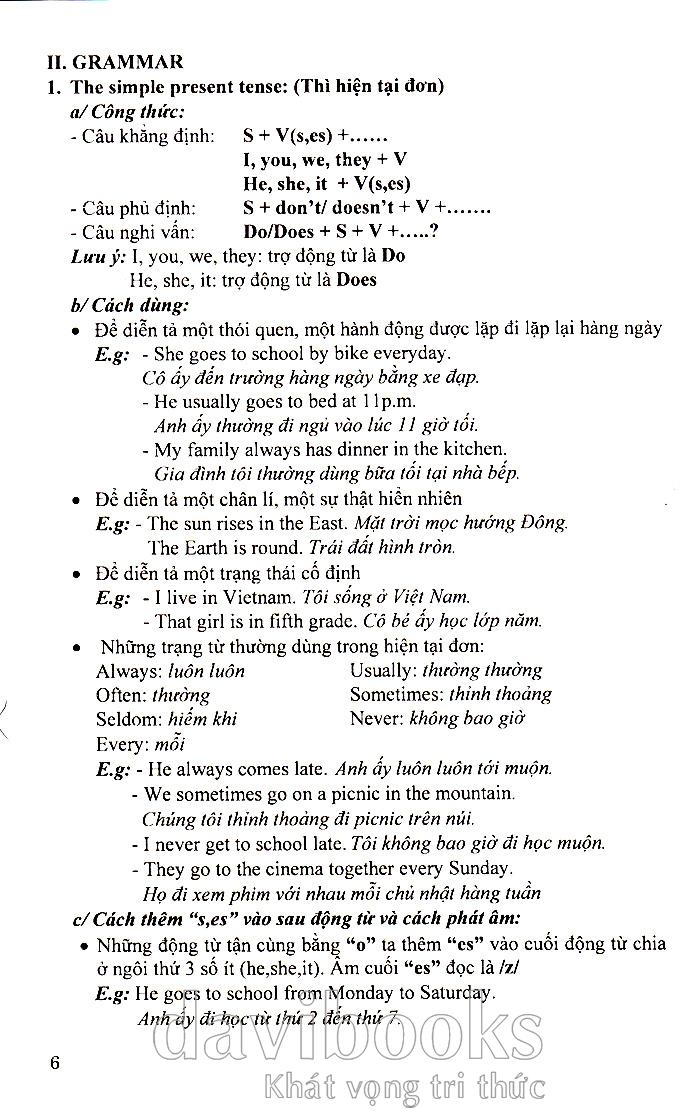 II. GRAMMAR
1. The simple present tense: (Thì hiện tại đơn)
a/ Công thức:
- Câu khẳng định: S + V(s,es) +......
I, you, we, they + V
He, she, it + V(s,es)
- Câu phủ định: S + don't/ doesn't + V +.......
- Câu nghi vấn: Do/Does + S + V +.....?
Lưu ý: I, you, we, they: trợ động từ là Do
He, she, it: trợ động từ là Does
b/ Cách dùng:
• Để diễn tả một thói quen, một hành động được lặp đi lặp lại hàng ngày
E.g: - She goes to school by bike everyday.
Cô ấy đến trường hàng ngày bằng xe đạp.
- He usually goes to bed at 11p.m.
Anh ấy thường đi ngủ vào lúc 11 giờ tối.
- My family always has dinner in the kitchen.
Gia đình tôi thường dùng bữa tối tại nhà bếp.
• Để diễn tả một chân lí, một sự thật hiển nhiên
E.g: - The sun rises in the East. Mặt trời mọc hướng Đông.
The Earth is round. Trái đất hình tròn.
• Để diễn tả một trạng thái cố định
E.g: - I live in Vietnam. Tôi sống ở Việt Nam.
- That girl is in fifth grade. Cô bé ấy học lớp năm.
• Những trạng từ thường dùng trong hiện tại đơn:
Always: luôn luôn Usually: thường thường
Often: thường Sometimes: thỉnh thoảng
Seldom: hiếm khi Never: không bao giờ
Every: mỗi
E.g: - He always comes late. Anh ấy luôn luôn tới muộn.
- We sometimes go on a picnic in the mountain.
Chúng tôi thỉnh thoảng đi picnic trên núi.
- I never get to school late. Tôi không bao giờ đi học muộn.
- They go to the cinema together every Sunday.
Họ đi xem phim với nhau mỗi chủ nhật hàng tuần
c/ Cách thêm "s,es" vào sau động từ và cách phát âm:
• Những động từ tận cùng bằng "o" ta thêm "es" vào cuối động từ chia
ở ngôi thứ 3 số ít (he,she,it). Âm cuối "es" đọc là /z/
E.g: He goes to school from Monday to Saturday.
Anh ấy đi học từ thứ 2 đến thứ 7.
davibooks
6
Khát vọng tri thức